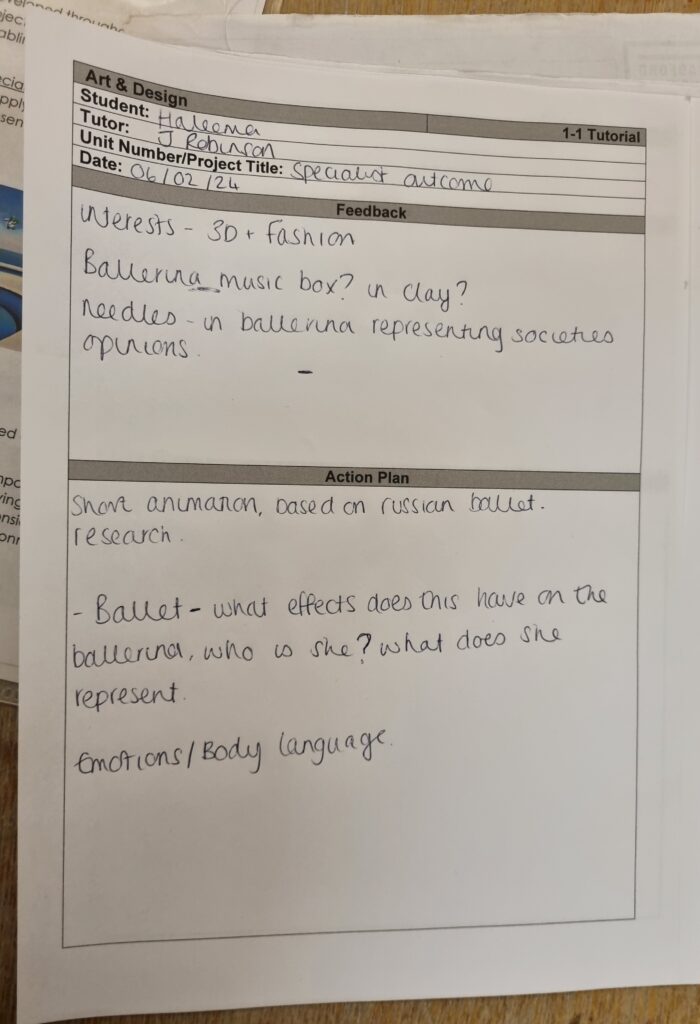 Art & Design
1-1 Tutorial
Student: Haleema
Tutor: J Robinson
Unit Number/Project Title: Specialist outcome
Date: 06/02/24
Feedback
interests - 3D + Fashion
Ballerina music box? in clay?
needles - in ballerina representing societies
opinions.
Action Plan
Short animation, based on russian ballet.
research.
- Ballet - what effects does this have on the
ballerina, who is she? what does she
represent.
Emotions/Body language.